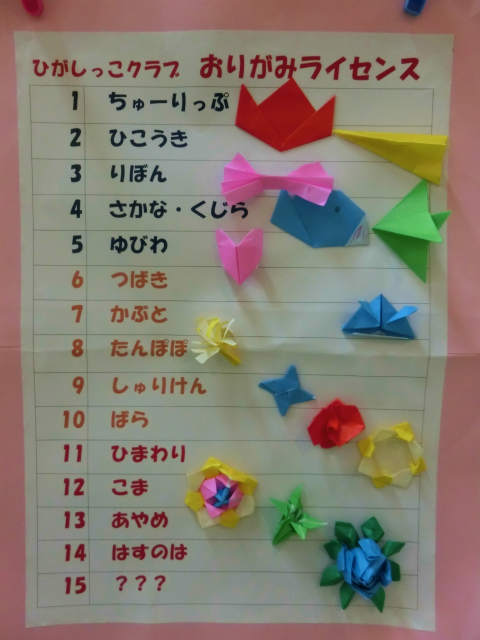 ひがしっこクラブ おりがみライセンス
1 ちゅーりっぷ
2 ひこうき
3 りぼん
4 さかな・くじら
5 ゆびわ
6 つばき
7 かぶと
8 たんぽぽ
9 しゅりけん
10 ばら
11 ひまわり
12 こま
13 あやめ
14 はすのは
15 ？？？